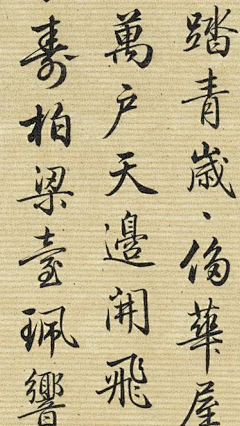 踏青歲丶華
萬户天邊開飛
壽柏梁臺珮響